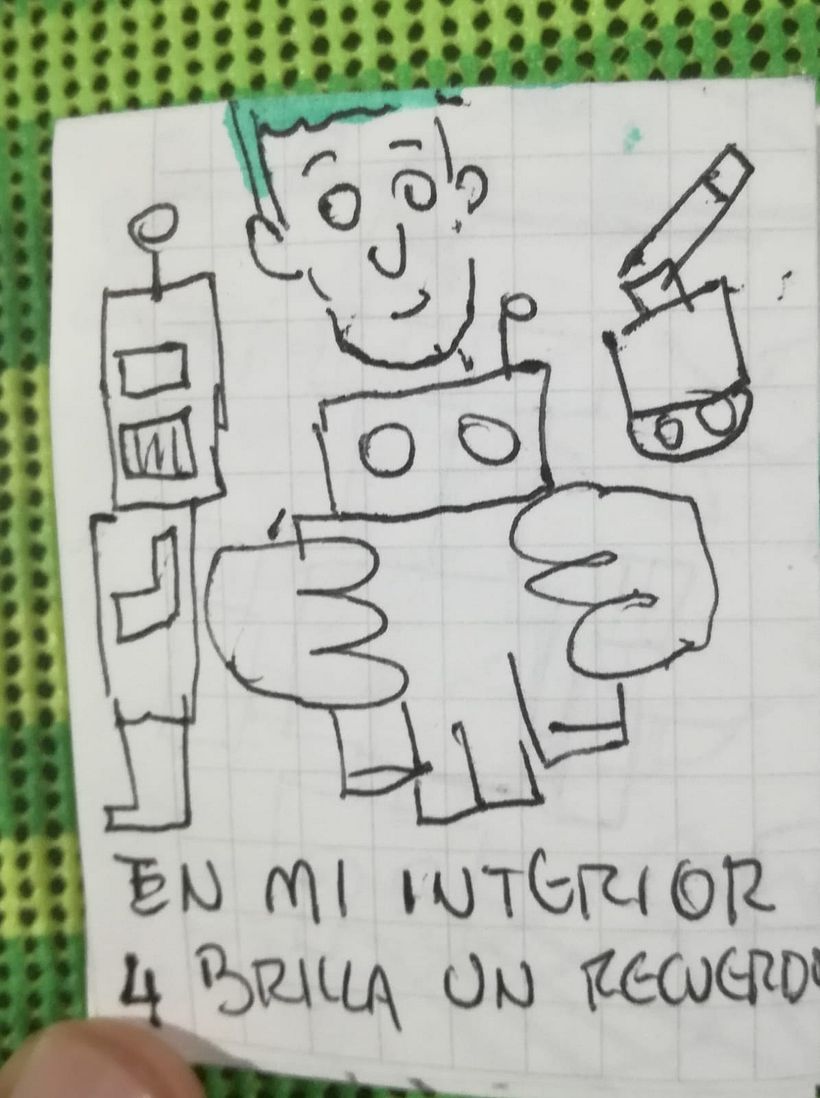 EN MI INTERIOR
4 BRILLA UN RECUERDO